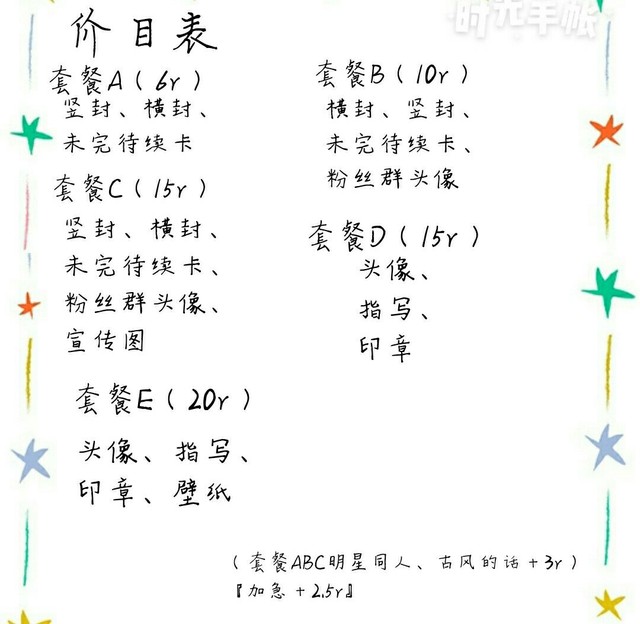 时光手帐
价目表
套餐A（6r）
竖封、横封、
未完待续卡
套餐B（10r）
横封、竖封、
未完待续卡、
粉丝群头像
套餐C（15r）
竖封、横封、
未完待续卡、
粉丝群头像、
宣传图
套餐D（15r）
头像、
指写、
印章
套餐E（20r）
头像、指写、
印章、壁纸
（套餐ABC明星同人、古风的话+3r）
『加急+2.5r』